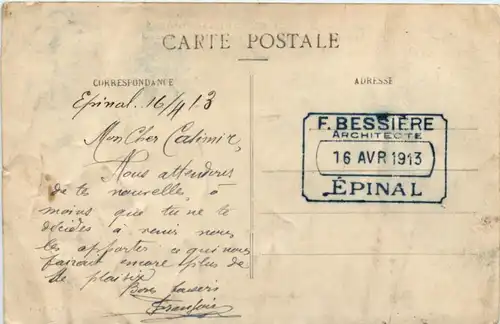 CARTE POSTALE
CORRESPONDANCE
ADRESSE
Epinal. 16/4/13
Mon Cher Casimir,
Nous attendons
de te nouvelles à
moins que tu ne te
décides à venir nous
les apporter ce qui nous
fairait encore plus de
plaisir
Bons baisers
F. BESSIÈRE
ARCHITECTE
16 AVR 1913
ÉPINAL